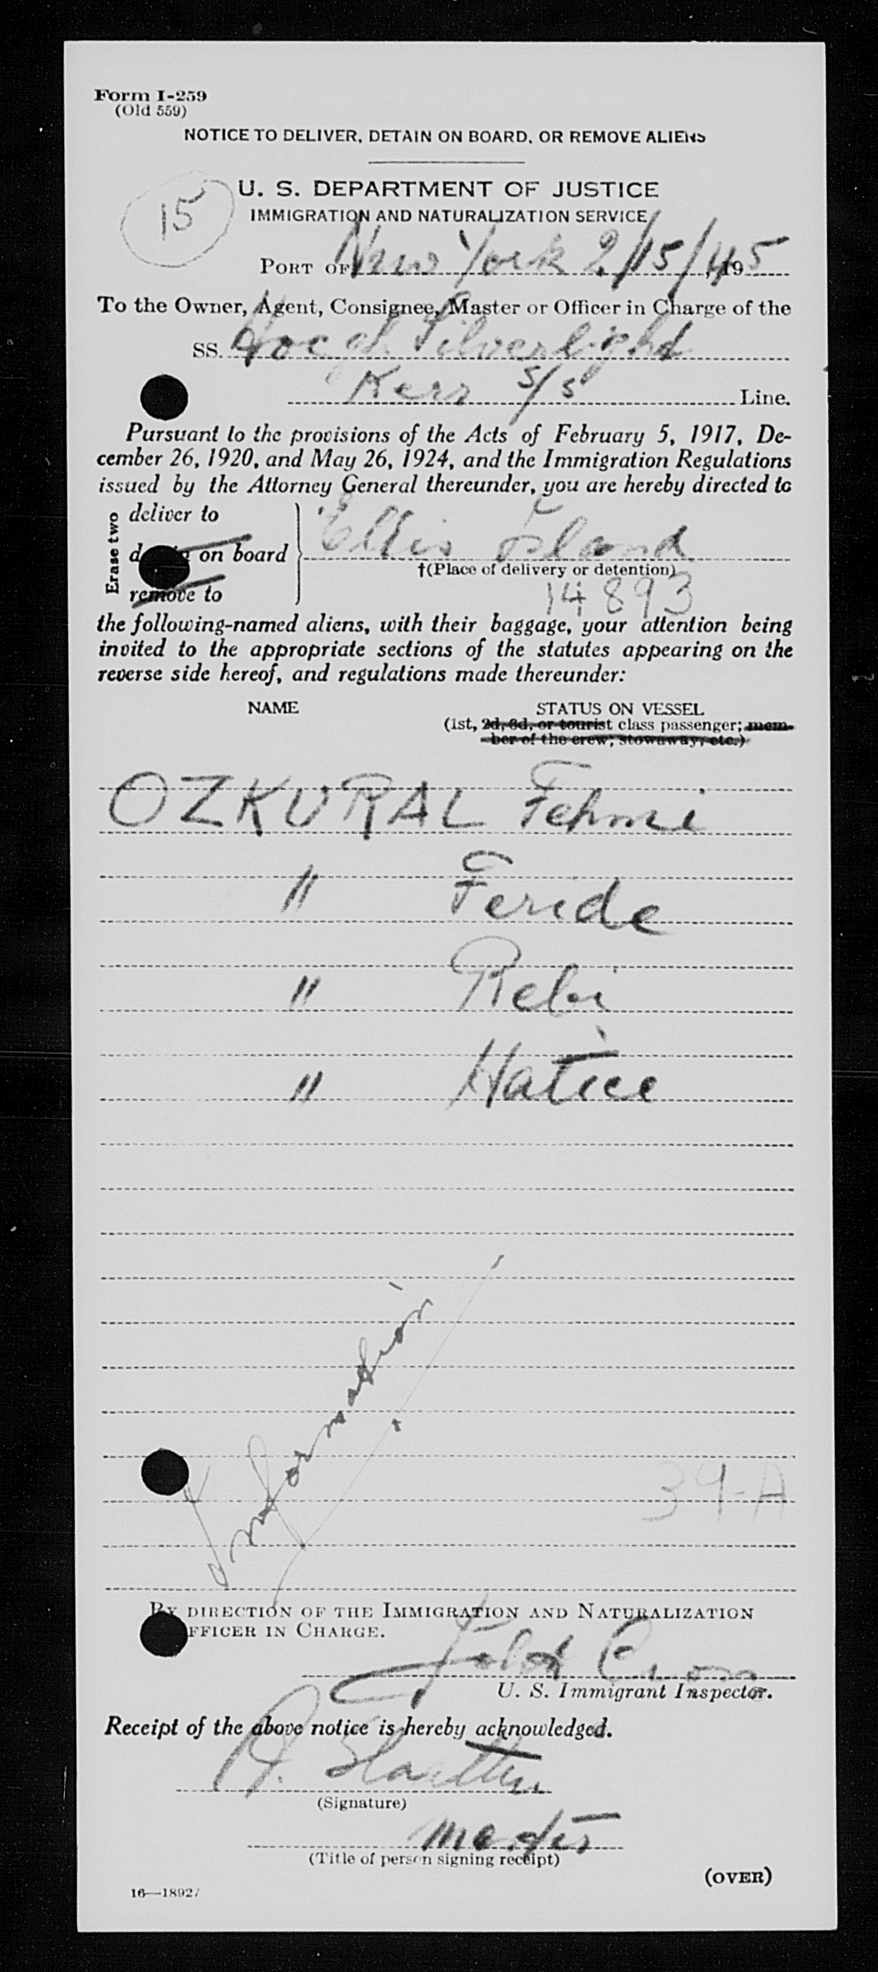 Form I-259
(Old 559)
NOTICE TO DELIVER, DETAIN ON BOARD, OR REMOVE ALIENS
U. S. DEPARTMENT OF JUSTICE
15
IMMIGRATION AND NATURALIZATION SERVICE
PORT OF New York 2/15/45, 195
To the Owner, Agent, Consignee, Master or Officer in Charge of the
SS. Silverlight
Kerr S/S Line.
Pursuant to the provisions of the Acts of February 5, 1917, De-
cember 26, 1920, and May 26, 1924, and the Immigration Regulations
issued by the Attorney General thereunder, you are hereby directed to
Erase two
deliver to
on board
remove to
Ellis Island
†(Place of delivery or detention)
14893
the following-named aliens, with their baggage, your attention being
invited to the appropriate sections of the statutes appearing on the
reverse side hereof, and regulations made thereunder:
NAME STATUS ON VESSEL
(1st, 2d, 3d, or tourist class passenger; mem-
ber of the crew; stowaway, etc.)
OZKURAL Fehmi
" Feride
" Rebi
" Hatice
Information
39-A
BY DIRECTION OF THE IMMIGRATION AND NATURALIZATION
FFICER IN CHARGE.
U. S. Immigrant Inspector.
Receipt of the above notice is hereby acknowledged.
(Signature)
Master
(Title of person signing receipt)
(OVER)
16—18927